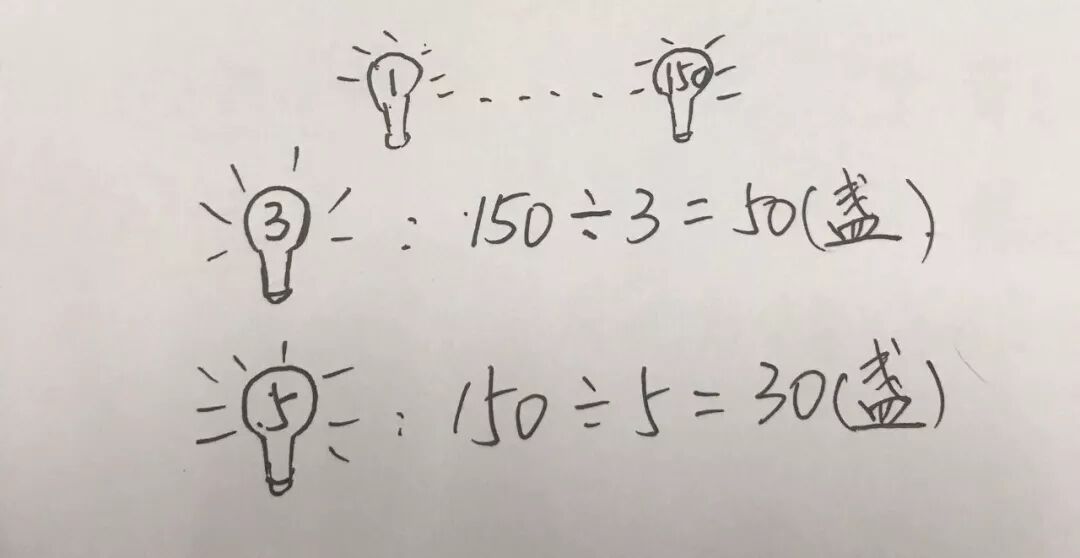 1 ...... 150
3 : 150÷3=50(盏)
5 : 150÷5=30(盏)